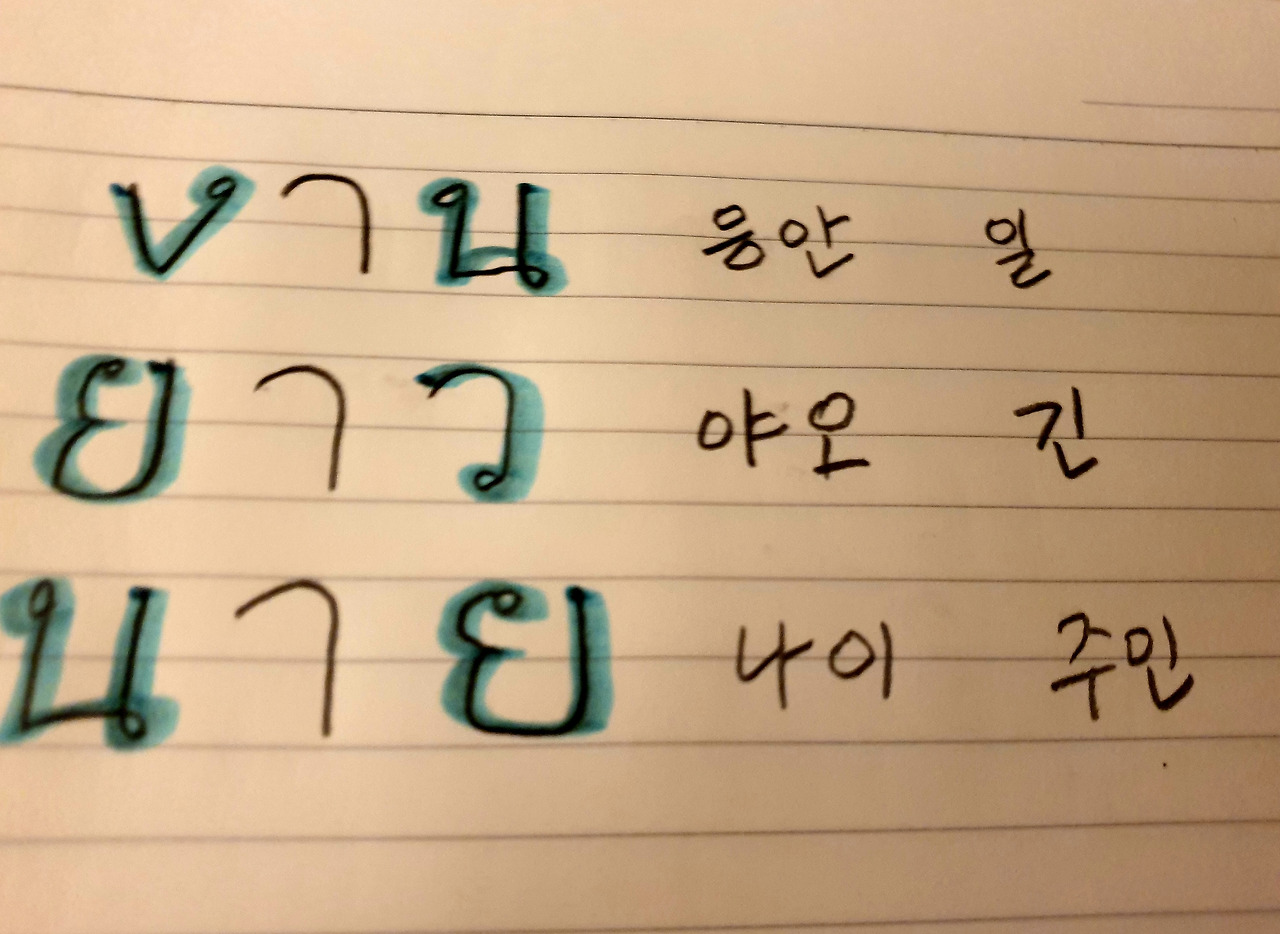 งาน 응안 일
ยาว 야오 긴
นาย 나이 주인